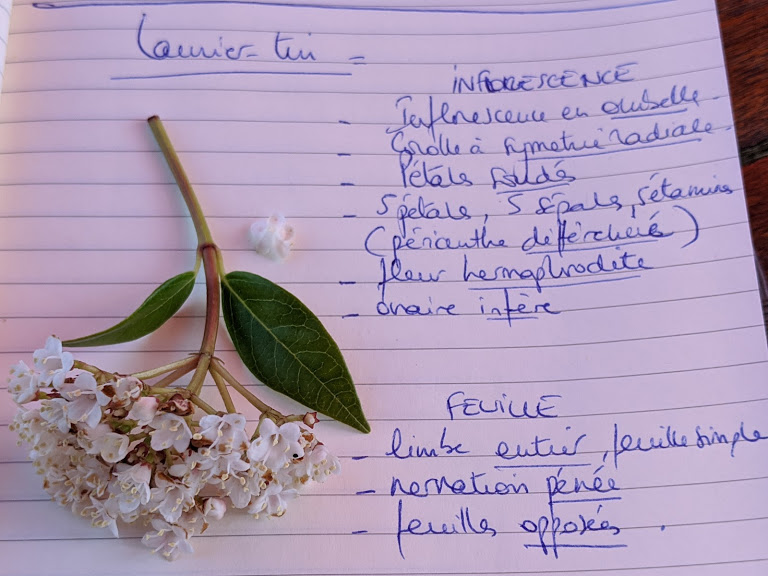 Laurier-tin =
INFLORESCENCE
- Inflorescence en ombelle.
- Corolle à symétrie radiale.
- Pétals soudés
- 5 pétals, 5 sépals, 5 étamines
(périanthe différencié)
- fleur hermaphrodite
- ovaire infère
FEUILLE
- limbe entier, feuille simple
- nervation pénée
- feuilles opposées.